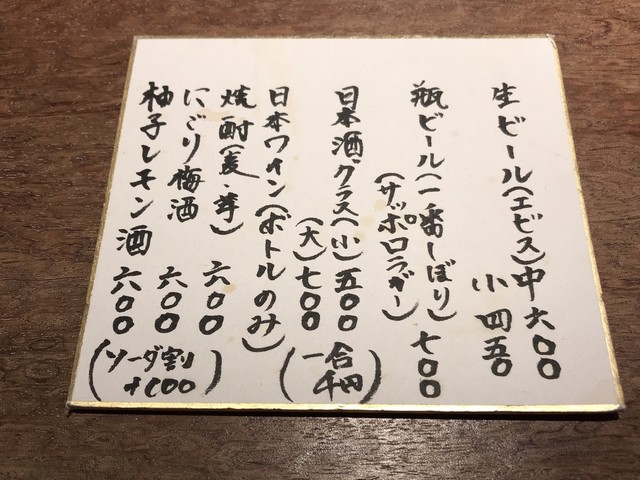 生ビール(エビス)中六〇〇
小四五〇
瓶ビール(一番しぼり)七〇〇
(サッポロラガー)
日本酒グラス(小)五〇〇
(大)七〇〇
(一合
千円)
日本ワイン(ボトルのみ)
焼酎(麦・芋)六〇〇
にごり梅酒 六〇〇
柚子レモン酒 六〇〇
(ソーダ割
+100)